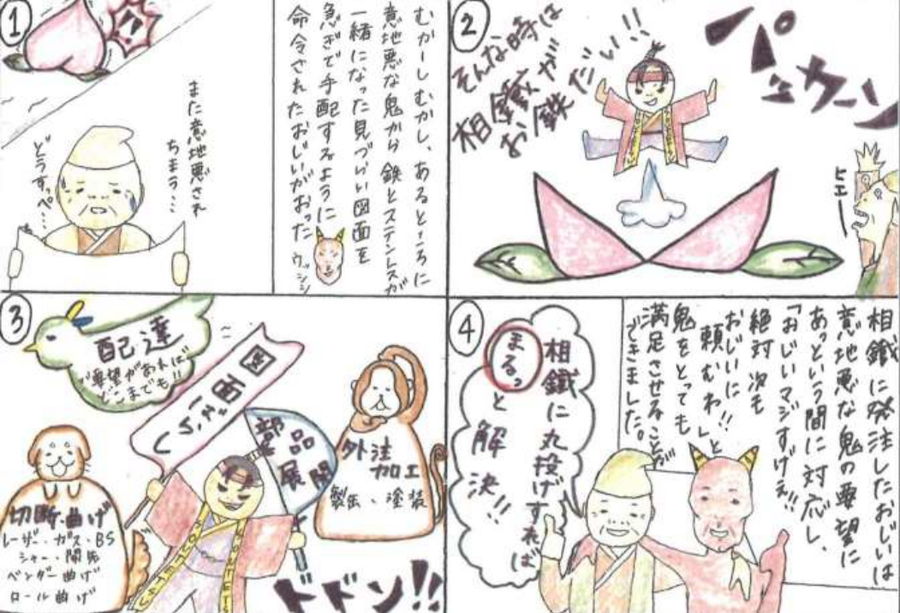 1
むかーしむかし、あるところに
意地悪な鬼から鉄とステンレスが
一緒になった見づらい図面を
急ぎで手配するように
命令されたおじいがおった
ウッシシ
また意地悪され
ちまう…
どうすっぺ…
2
パッカーン
そんな時は
相鐵が
お鉄だい!!
ヒエー
3
配達
ご要望があれば
どこまでも!!
図面バラし
部品
展開
外注
加工
製缶・塗装
切断・曲げ
レーザー・ガス・BS
シャー・開先
ベンダー曲げ
ロール曲げ
ドドン!!
4
相鐵に発注したおじいは
意地悪な鬼の要望に
あっという間に対応し、
「おじいマジすげえ!!
絶対次も
おじいに!!
頼むわ」と
鬼をとっても
満足させることが
できました。
相鐵に丸投げすれば
まるっと解決!!